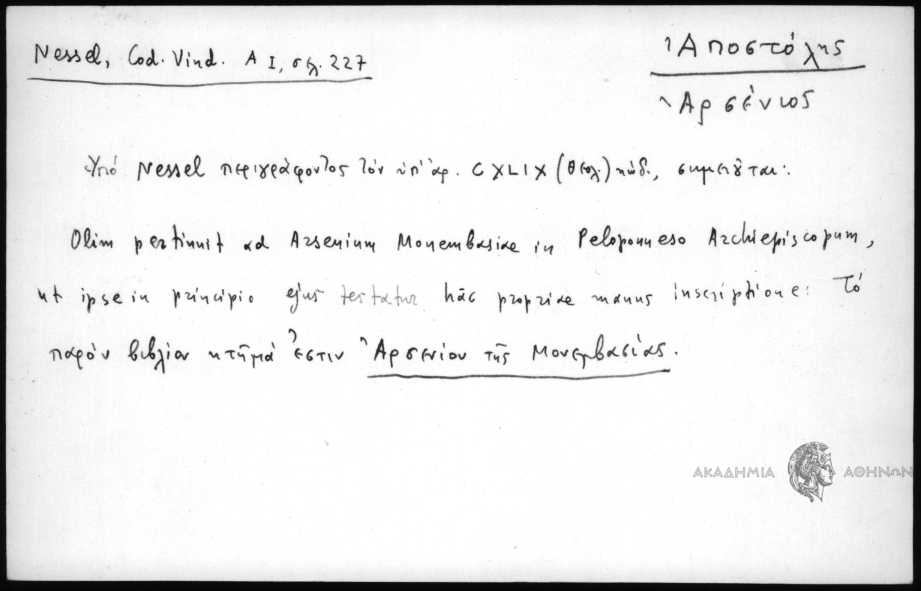 Nessel, Cod. Vind. A I, σελ. 227
Ἀποστόλης
Ἀρσένιος
Ὑπό Nessel περιγράφοντος τόν ὑπ' ἀρ. CXLIX (θεολ.) κώδ., σημειοῦται:
Olim pertinuit ad Arsenium Monembasiae in Peloponneso Archiepiscopum,
ut ipse in principio ejus testatur hâc propriae manus inscriptione: Τό
παρόν βιβλίον κτῆμά ἐστιν Ἀρσενίου τῆς Μονεμβασίας.
ΑΚΑΔΗΜΙΑ ΑΘΗΝΩΝ